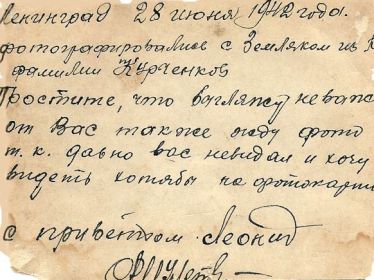 Ленинград 28 июня 1942 года.
фотографировались с Земляком из
фамилии Курченков
Простите, что выгляжу неваж
от Вас также жду фото
т. к. давно вас невидал и хочу
видеть хотябы на фотокарти
с приветом. Леонид